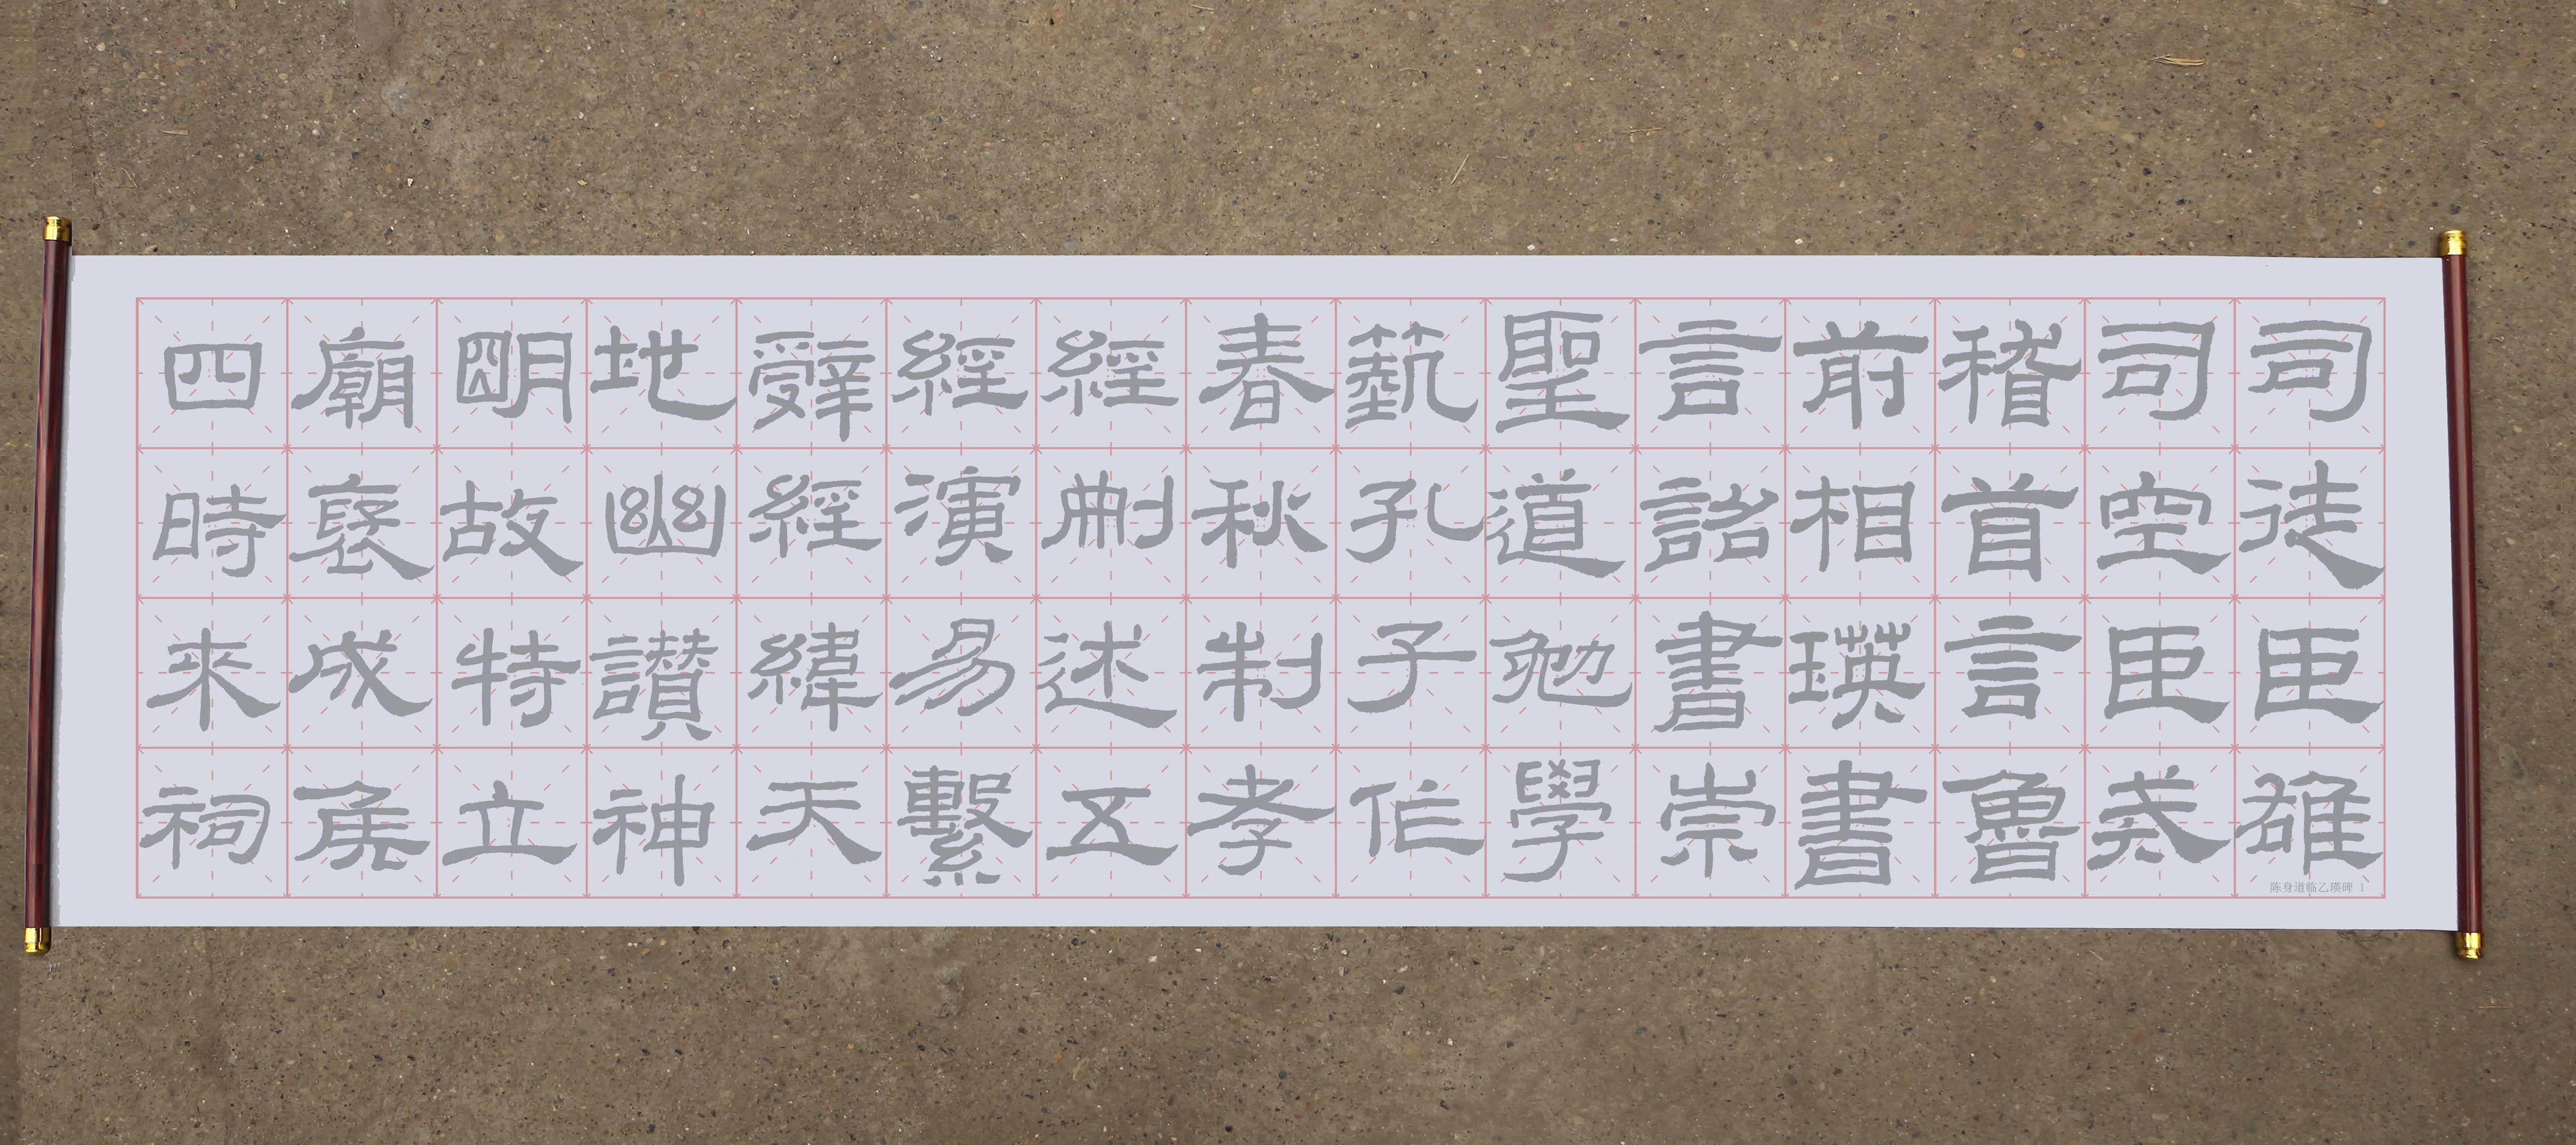 司徒臣雄
司空臣戒
稽首言魯
前相瑛書
言詔書崇
聖道勉學
藝孔子作
春秋制孝
經刪述五
經演易繫
辭經緯天
地幽讚神
明故特立
廟褒成侯
四時來祠
陈身道临乙瑛碑 1